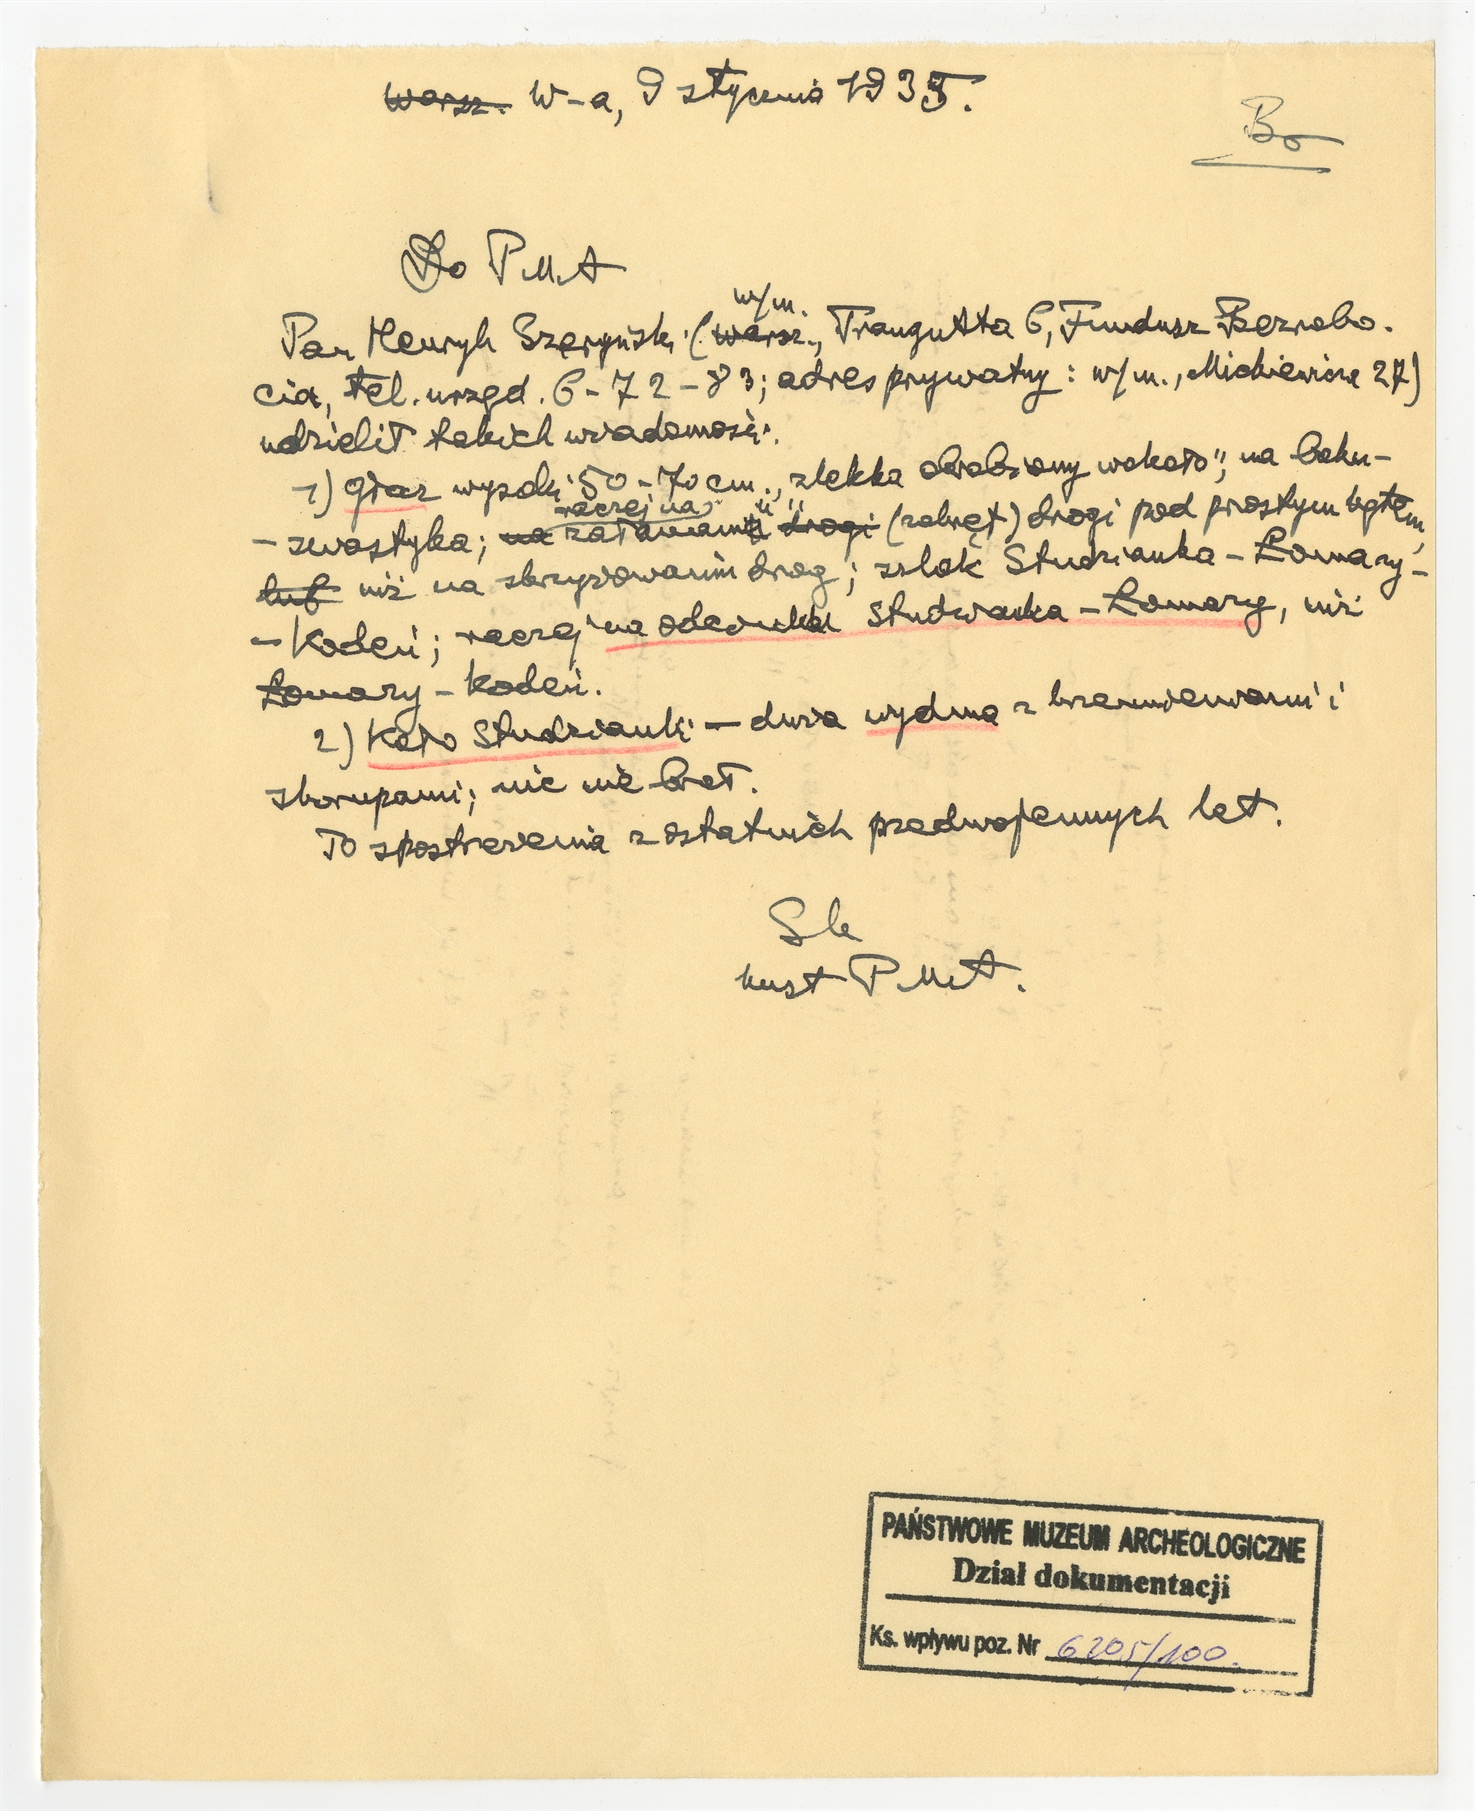 Warsz. W-a, 9 stycznia 1935.
Bo
Do PMA
w/m.
Pan Henryk Szeryński (Warsz., Traugutta 6, Fundusz Bezrobo-
cia, tel. urzęd. 6-72-83; adres prywatny: w/m., Mickiewicza 27)
udzielił takich wiadomości:
1) głaz wysoki 50-70 cm., "zlekka obrobiony wokoło"; na boku-
raczej na
- swastyka; na załamaniu drogi (zakręt) drogi pod prostym kątem,
lub niż na skrzyżowaniu dróg; szlak Studzianka - Łomazy -
- Kodeń; raczej na odcinku Studzianka - Łomazy, niż
Łomazy - Kodeń.
2) Koło Studzianki - duża wydma z krzemieniami i
skorupami; nic nie brał.
To spostrzeżenia z ostatnich przedwojennych lat.
kust PMA.
PAŃSTWOWE MUZEUM ARCHEOLOGICZNE
Dział dokumentacji
Ks. wpływu poz. Nr 6205/100.